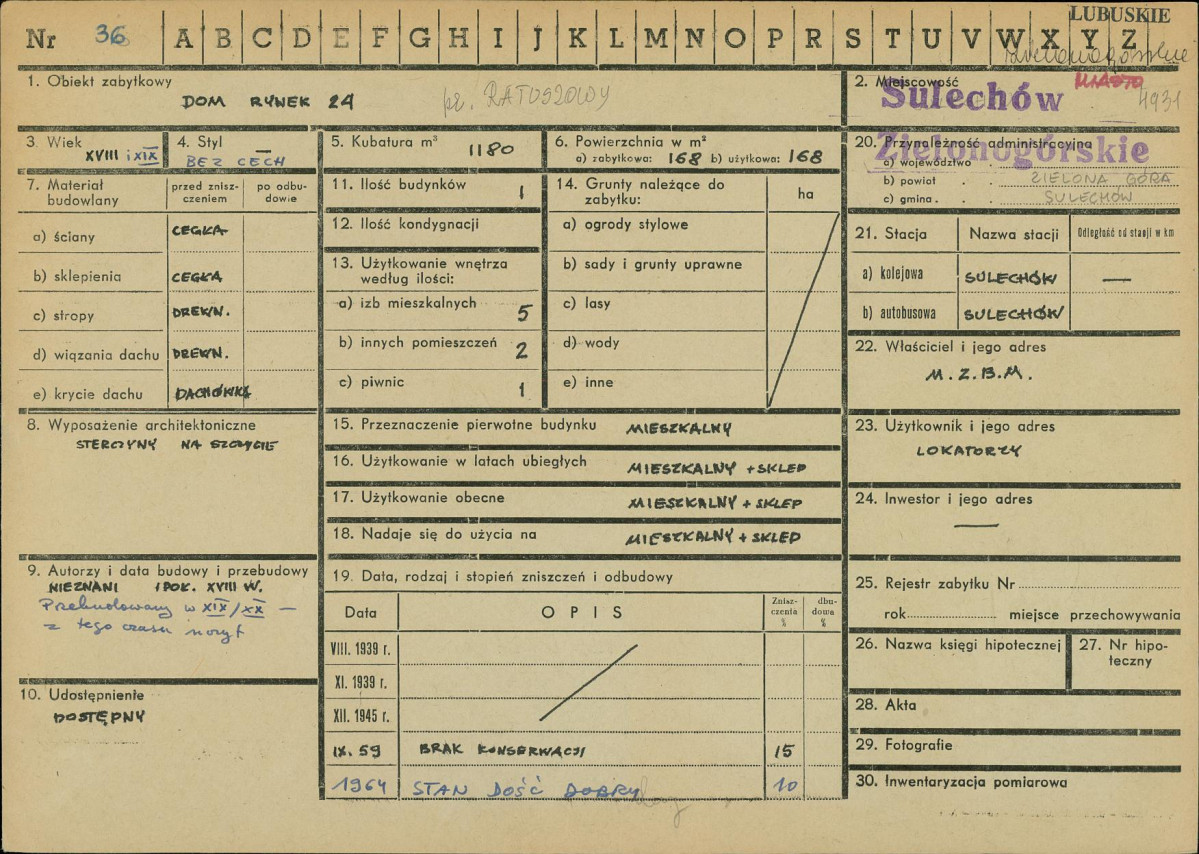 LUBUSKIE
Nr 36 A B C D E F G H I J K L M N O P R S T U V W X Y Z
1. Obiekt zabytkowy
DOM RYNEK 24
pl. RATUSZOWY
2. Miejscowość MIASTO
Sulechów 4931
3. Wiek
XVIII i XIX
4. Styl —
BEZ CECH
5. Kubatura m³ 1180
6. Powierzchnia w m²
a) zabytkowa: 168 b) użytkowa: 168
20. Przynależność administracyjna
Zielonogórskie
a) województwo
b) powiat . . ZIELONA GÓRA
c) gmina . . SULECHÓW
7. Materiał budowlany
przed zniszczeniem
po odbudowie
a) ściany CEGŁA
b) sklepienia CEGŁA
c) stropy DREWN.
d) wiązania dachu DREWN.
e) krycie dachu DACHÓWKA
11. Ilość budynków 1
12. Ilość kondygnacji
13. Użytkowanie wnętrza
według ilości:
a) izb mieszkalnych 5
b) innych pomieszczeń 2
c) piwnic 1
14. Grunty należące do
zabytku:
ha
a) ogrody stylowe
b) sady i grunty uprawne
c) lasy
d) wody
e) inne
21. Stacja Nazwa stacji Odległość od stacji w km
a) kolejowa SULECHÓW —
b) autobusowa SULECHÓW
22. Właściciel i jego adres
M.Z.B.M.
8. Wyposażenie architektoniczne
STERCZYNY NA SZCZYCIE
15. Przeznaczenie pierwotne budynku MIESZKALNY
16. Użytkowanie w latach ubiegłych MIESZKALNY + SKLEP
17. Użytkowanie obecne MIESZKALNY + SKLEP
18. Nadaje się do użycia na MIESZKALNY + SKLEP
23. Użytkownik i jego adres
LOKATORZY
24. Inwestor i jego adres
—
9. Autorzy i data budowy i przebudowy
NIEZNANI I POŁ. XVIII W.
Przebudowany w XIX/XX —
z tego czasu
10. Udostępnienie
DOSTĘPNY
19. Data, rodzaj i stopień zniszczeń i odbudowy
Data OPIS Zniszczenia % dbudowa %
VIII. 1939 r.
XI. 1939 r.
XII. 1945 r.
IX. 59 BRAK KONSERWACJI 15
1964 STAN DOŚĆ DOBRY 10
25. Rejestr zabytku Nr
rok miejsce przechowywania
26. Nazwa księgi hipotecznej
27. Nr hipoteczny
28. Akta
29. Fotografie
30. Inwentaryzacja pomiarowa